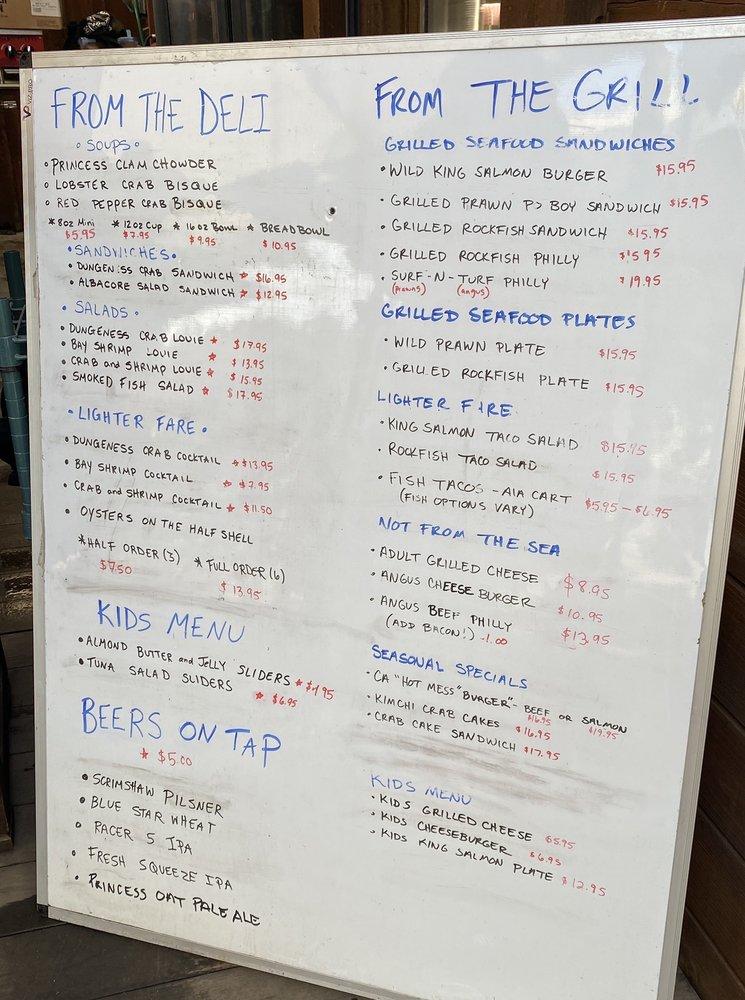 FROM THE DELI
• SOUPS •
• PRINCESS CLAM CHOWDER
• LOBSTER CRAB BISQUE
• RED PEPPER CRAB BISQUE
* 8oz Mini * 12oz Cup * 16oz Bowl * BREADBOWL
$5.95 $7.95 $9.95 $10.95
• SANDWICHES •
• DUNGENESS CRAB SANDWICH * $16.95
• ALBACORE SALAD SANDWICH * $12.95
• SALADS •
• DUNGENESS CRAB LOUIE * $17.95
• BAY SHRIMP LOUIE * $13.95
• CRAB and SHRIMP LOUIE * $15.95
• SMOKED FISH SALAD * $17.95
• LIGHTER FARE •
• DUNGENESS CRAB COCKTAIL * $13.95
• BAY SHRIMP COCKTAIL * $7.95
• CRAB and SHRIMP COCKTAIL * $11.50
• OYSTERS ON THE HALF SHELL
* HALF ORDER (3) * FULL ORDER (6)
$7.50 $13.95
KIDS MENU
• ALMOND BUTTER and JELLY SLIDERS * $4.95
• TUNA SALAD SLIDERS * $6.95
BEERS ON TAP
* $5.00
• SCRIMSHAW PILSNER
• BLUE STAR WHEAT
• RACER 5 IPA
• FRESH SQUEEZE IPA
• PRINCESS OAT PALE ALE
FROM THE GRILL
GRILLED SEAFOOD SANDWICHES
• WILD KING SALMON BURGER $15.95
• GRILLED PRAWN PO BOY SANDWICH $15.95
• GRILLED ROCKFISH SANDWICH $15.95
• GRILLED ROCKFISH PHILLY $15.95
• SURF-N-TURF PHILLY $19.95
(prawns) (angus)
GRILLED SEAFOOD PLATES
• WILD PRAWN PLATE $15.95
• GRILLED ROCKFISH PLATE $15.95
LIGHTER FARE
• KING SALMON TACO SALAD $15.95
• ROCKFISH TACO SALAD $15.95
• FISH TACOS - ALA CART $5.95 - $6.95
(FISH OPTIONS VARY)
NOT FROM THE SEA
• ADULT GRILLED CHEESE $8.95
• ANGUS CHEESE BURGER $10.95
• ANGUS BEEF PHILLY $13.95
(ADD BACON!) -1.00
SEASONAL SPECIALS
• CA "HOT MESS" BURGER"- BEEF OR SALMON
$16.95 $19.95
• KIMCHI CRAB CAKES $16.95
• CRAB CAKE SANDWICH $17.95
KIDS MENU
• KIDS GRILLED CHEESE $5.95
• KIDS CHEESEBURGER $6.95
• KIDS KING SALMON PLATE $12.95